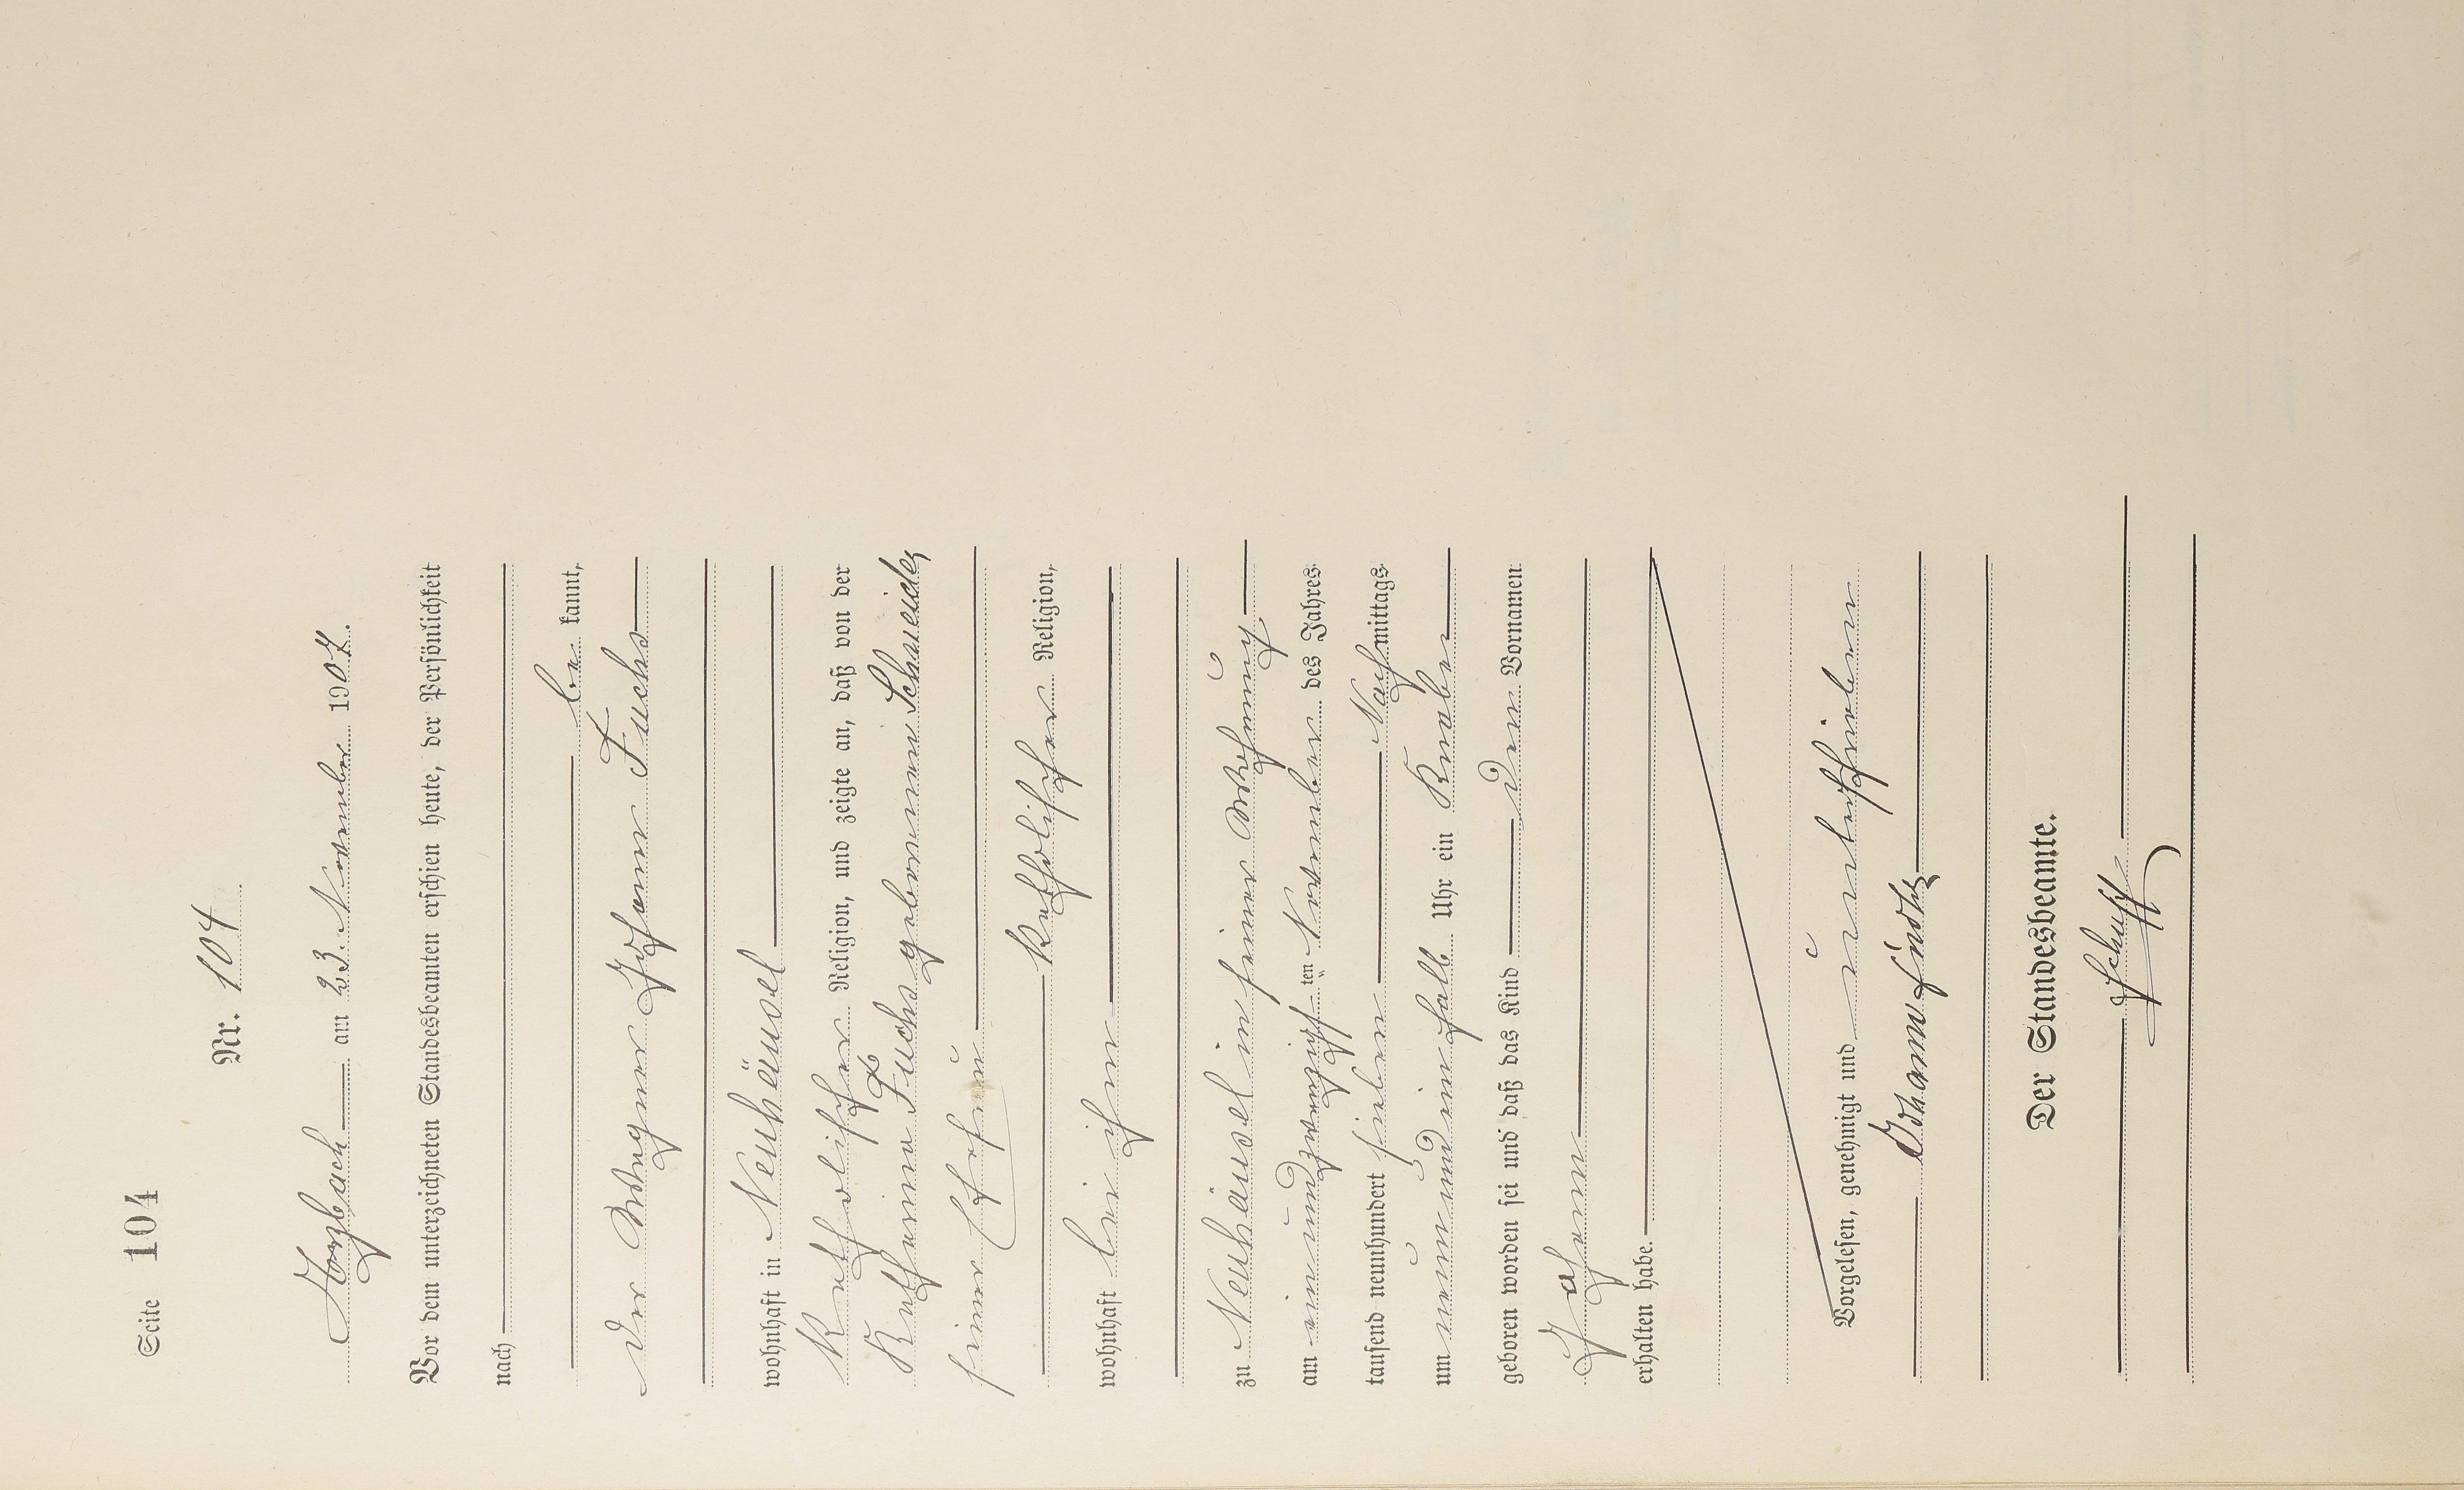 Seite 104
Nr. 104
am 23. November 1907.
Vor dem unterzeichneten Standesbeamten erschien heute, der Persönlichkeit
nach
be kannt,
der Wagner Johann Fuchs
wohnhaft in Neuhäusel
Katholischer Religion, und zeigte an, daß von der
Katharina Fuchs geborenen Schneider
seiner Ehefrau
Katholischer Religion,
wohnhaft bei ihm
zu Neuhäusel in seiner Wohnung
am einundzwanzigsten November des Jahres
tausend neunhundert sieben Nachmittags
um neun und ein halb Uhr ein Knabe
geboren worden sei und daß das Kind den Vornamen
Johann
erhalten habe.
Vorgelesen, genehmigt und unterschrieben
Johann Fuchs
Der Standesbeamte.